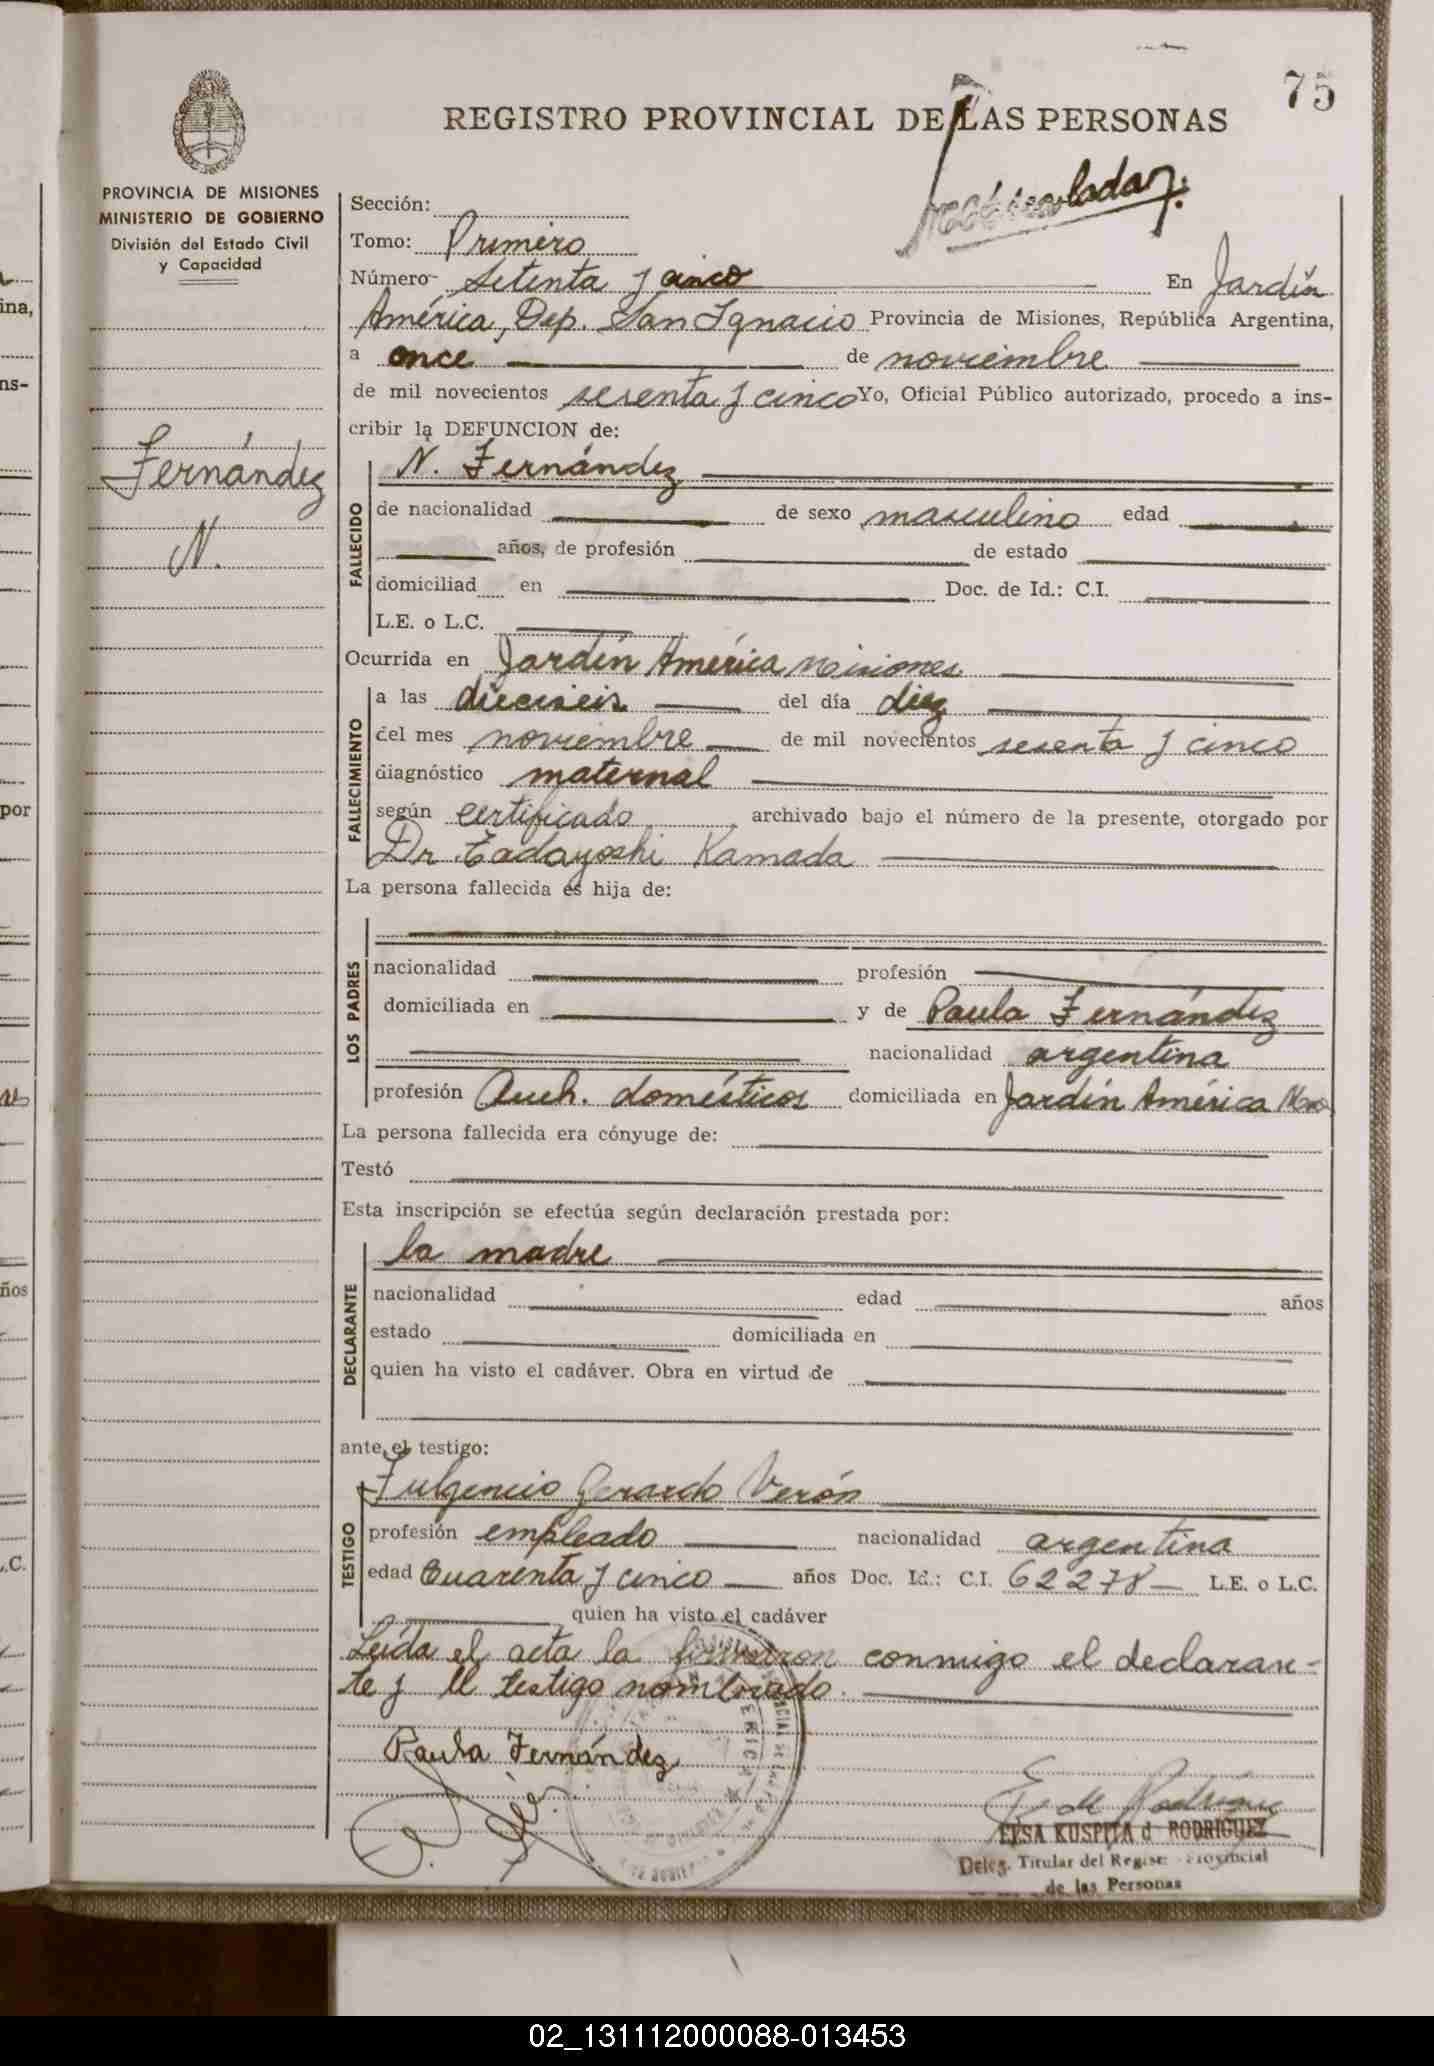 75
REGISTRO PROVINCIAL DE LAS PERSONAS
PROVINCIA DE MISIONES
MINISTERIO DE GOBIERNO
División del Estado Civil
y Capacidad
Fernández
N.
Sección:
Tomo: Primero
Número- Setenta y cinco En Jardín
América, Dep. San Ignacio Provincia de Misiones, República Argentina,
a once de noviembre
de mil novecientos sesenta y cinco Yo, Oficial Público autorizado, procedo a ins-
cribir la DEFUNCION de:
N. Fernández
FALLECIDO
de nacionalidad de sexo masculino edad
años, de profesión de estado
domiciliad en Doc. de Id.: C.I.
L.E. o L.C.
Ocurrida en Jardín América Misiones
FALLECIMIENTO
a las dieciseis del día diez
del mes noviembre de mil novecientos sesenta y cinco
diagnóstico maternal
según certificado archivado bajo el número de la presente, otorgado por
Dr. Tadayoshi Kamada
La persona fallecida es hija de:
LOS PADRES
nacionalidad profesión
domiciliada en y de Paula Fernández
nacionalidad argentina
profesión Queh. domésticos domiciliada en Jardín América Mnes
La persona fallecida era cónyuge de:
Testó
Esta inscripción se efectúa según declaración prestada por:
la madre
DECLARANTE
nacionalidad edad años
estado domiciliada en
quien ha visto el cadáver. Obra en virtud de
ante el testigo:
Fulgencio Gerardo Verón
TESTIGO
profesión empleado nacionalidad argentina
edad Cuarenta y cinco años Doc. Id.: C.I. 62278 L.E. o L.C.
quien ha visto el cadáver
Leída el acta la firmaron conmigo el declaran-
te y el testigo nombrado.
Paula Fernández
E. de Rodríguez
ELSA KUSPITA d RODRIGUEZ
Deleg. Titular del Regist. Provincial
de las Personas
02_131112000088-013453